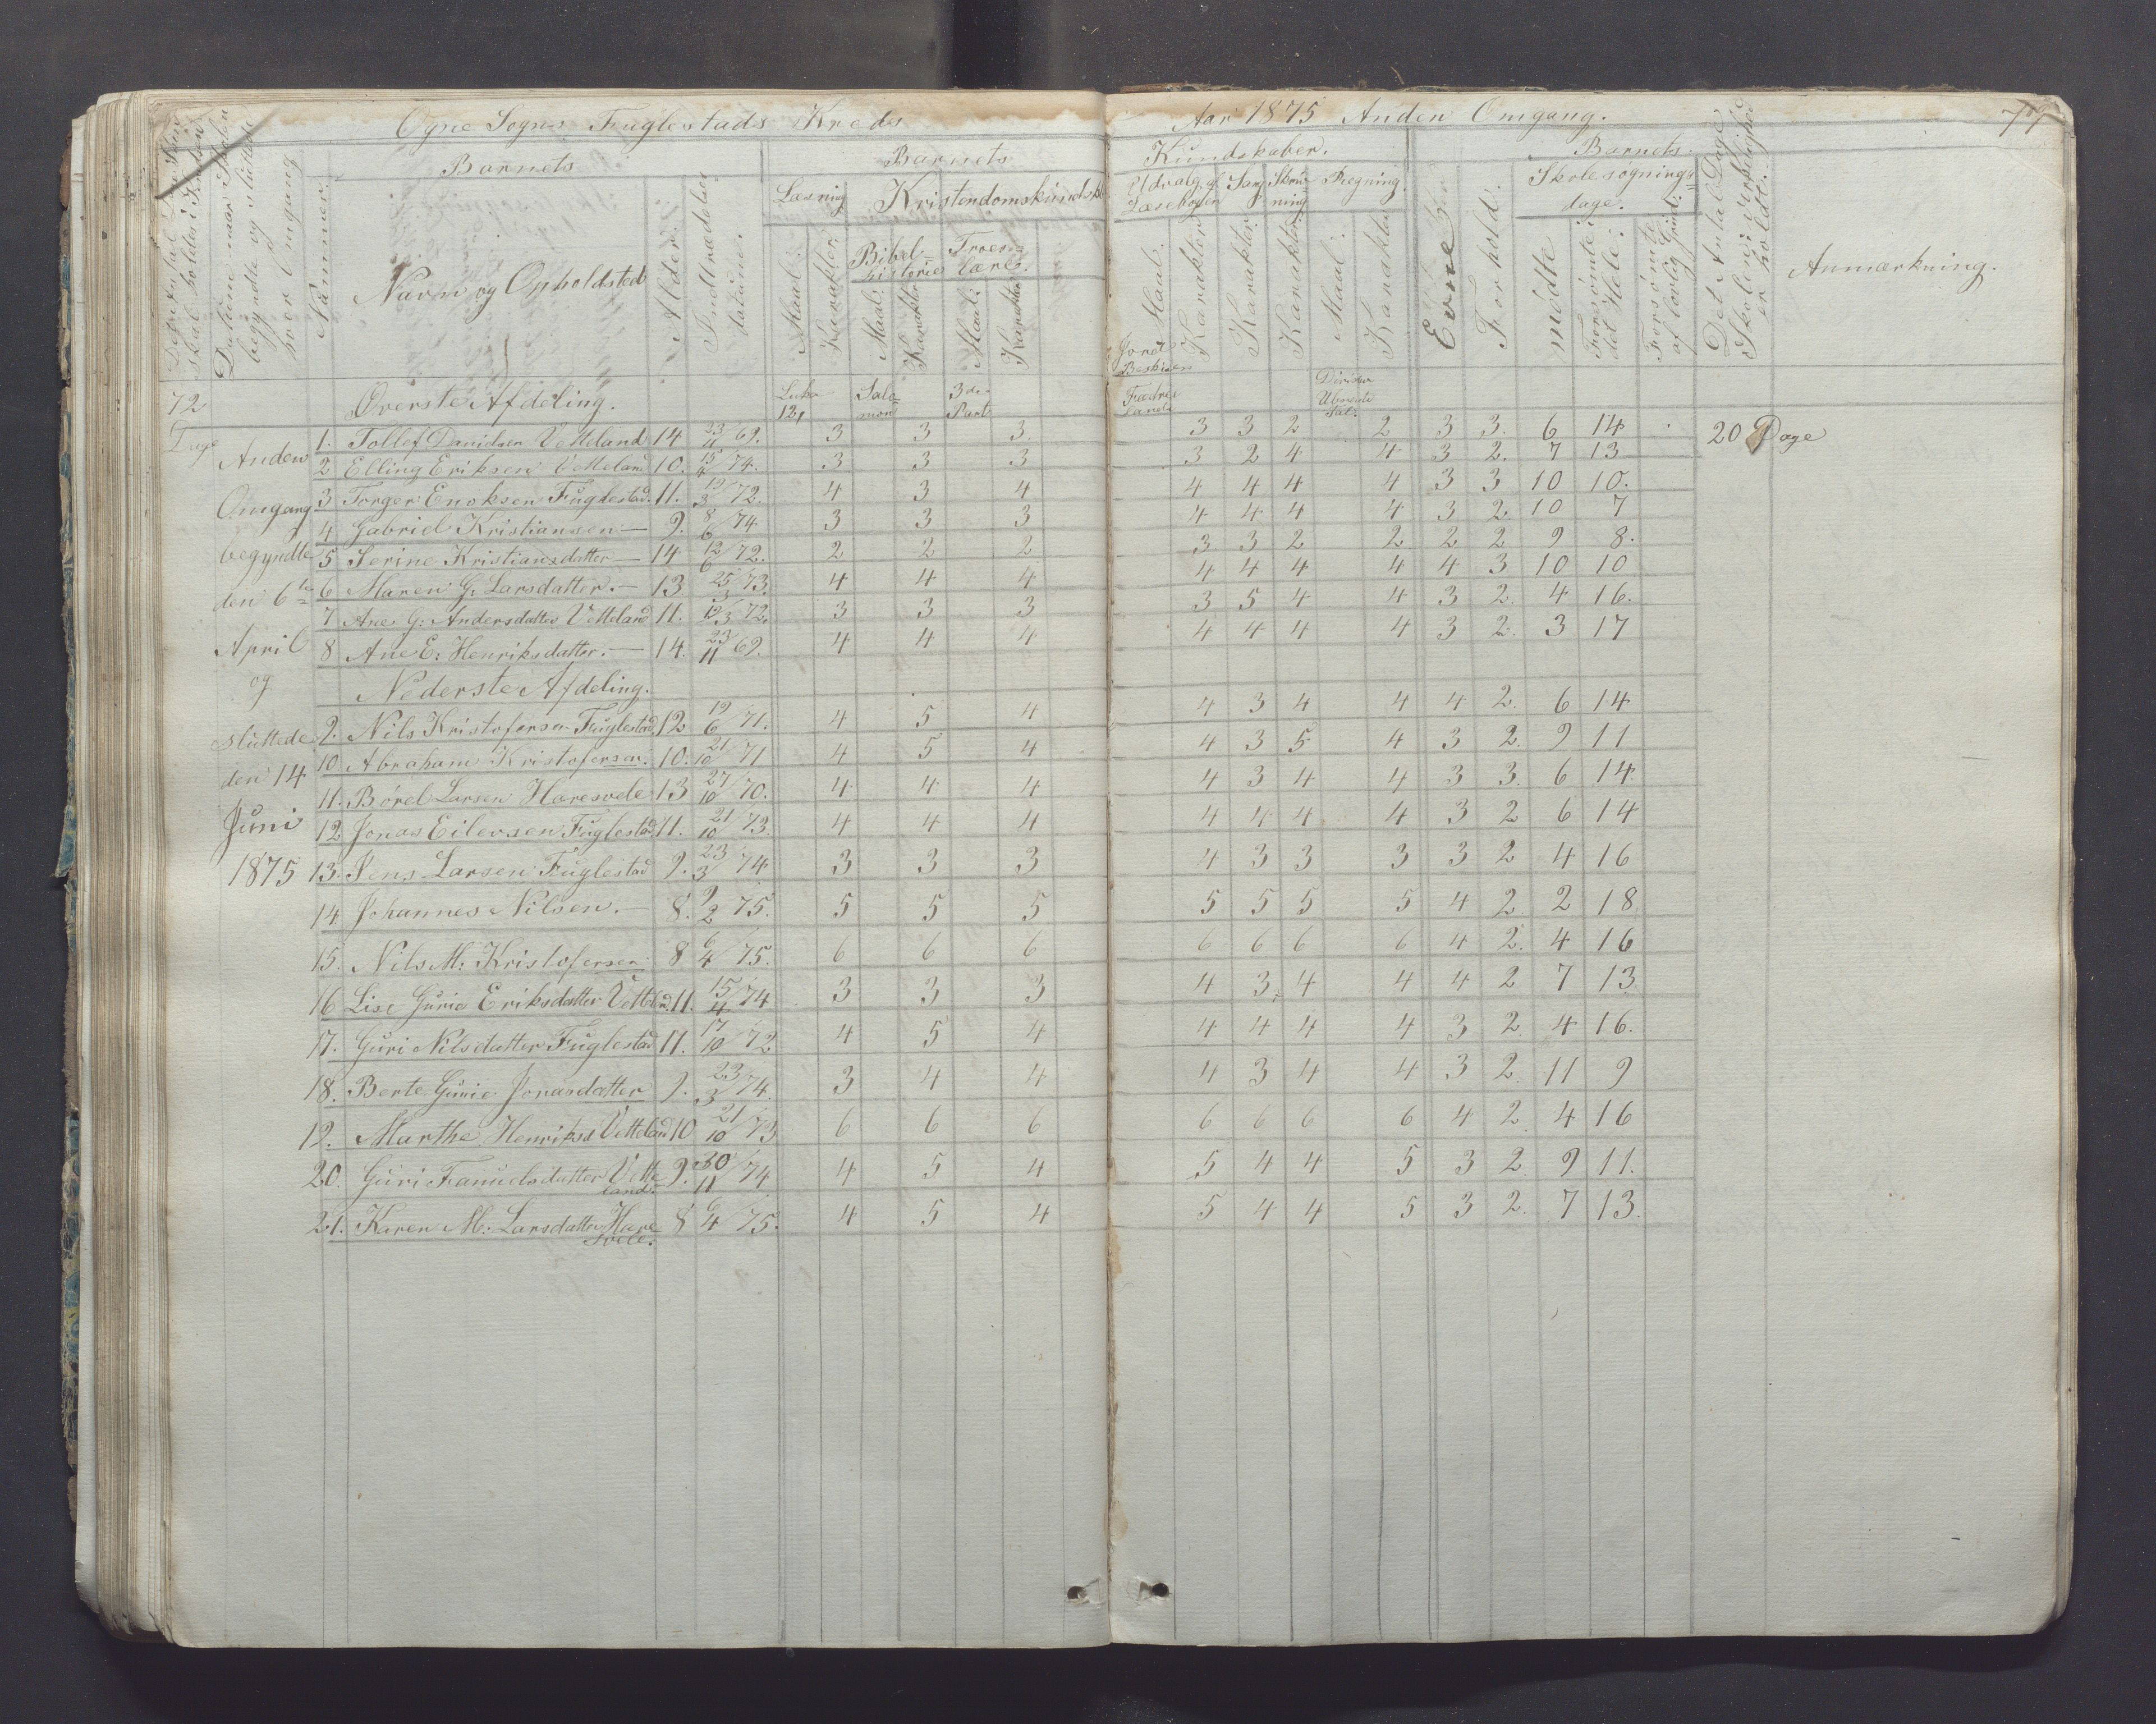 Ogne Sogns Fuglestads Kreds
Aar 1875 Anden Omgang. 77
Barnets
Barnets
Kundskaber.
Barnets
Datum naar Skolen begyndte og sluttede hver Omgang
Nummer.
Navn og Opholdsted
Alder.
Indtrædelses datum.
Læsning
Kristendomskundsk.
Bibel= historie
Troes= lære.
Maal:
Karakter
Maal:
Karakter
Maal:
Karakter
Udvalg af Læsebogen
Sang
Skriv= ning
Regning.
Maal:
Karakter
Karakter
Karakter
Maal:
Karakter
Evne
Forhold.
Skolesøgnings= dage.
mødte
Forsømte: det Hele:
Forsømte af lovlig Grund:
Det Antal Dage Skolen i virkelighed er holdt:
Anmærkning.
72 Dage
Øverste Afdeling.
Luka 12,
Salo= mon
3die Part
Jord Beskriven
Fædre land
Anden Omgang begyndte den 6te April og sluttede den 14 Juni 1875
1. Tollef Danielsen Vetteland 14 23/11 69. 3 3 3. 3 3 2 2 3 3. 6 14 20 Dage
2 Elling Eriksen Vetteland 10. 15/4 74. 3 3 3 3 2 4 4 3 2. 7 13
3 Torger Enoksen Fuglestad. 11. 19/3 72. 4 3 4 4 4 4 4 3 3 10 10.
4 Gabriel Kristiansen — 9. 8/6 74 3 3 3 4 4 4 4 3 2. 10 7
5 Serine Kristiansdatter — 14 12/6 72. 2 2 2 3 3 2 2 2 2 9 8.
6 Maren G. Larsdatter. — 13 25/3 73. 4 4 4 4 4 4 4 4 3 10 10
7 Ane G: Andersdatter Vetteland 11. 19/3 72. 3 3 3 3 5 4 4 3 2. 4 16.
8 Ane E: Henriksdatter. — 14. 23/11 69. 4 4 4 4 4 4 4 3 2. 3 17
Nederste Afdeling.
9. Nils Kristofersen Fuglestad 12 19/6 71. 4 5 4 4 3 4 4 4 2. 6 14
10. Abraham Kristofersen. 10. 21/10 71 4 5 4 4 3 5 4 3 2. 9 11
11. Børel Larsen Haresvele 13 27/10 70. 4 4 4 4 3 4 4 3 3. 6 14
12 Jonas Eilevsen Fuglestad 11. 21/10 73. 4 4 4 4 4 4 4 3 2 6 14
13. Jens Larsen Fuglestad 9. 23/3 74 3 3 3 4 3 3 3 3 2 4 16
14 Johannes Nilsen. — 8. 9/2 75. 5 5 5 5 5 5 5 4 2 2 18
15. Nils M: Kristofersen 8 6/4 75. 6 6 6 6 6 6 6 4 2. 4 16
16 Lise Gurie Eriksdatter Vetteland. 11. 15/4 74 3 3 3 4 3. 4 4 4 2 7 13
17. Guri Nilsdatter Fuglestad 11. 17/10 72 4 5 4 4 4 4 4 3 2. 4 16.
18. Berte Gurie Jonasdatter 9. 23/3 74. 3 4 4 4 3 4 4 3 2. 11 9
19. Marthe Henriksd Vetteland 10 21/10 73 6 6 6 6 6 6 6 4 2. 4 16
20. Guri Samuelsdatter Vette land. 9. 30/11 74 4 5 4 5 4 4 5 3 2. 9 11.
21. Karen M. Larsdatter Hare svele. 8 6/4 75. 4 5 4 5 4 4 5 3 2. 7 13.